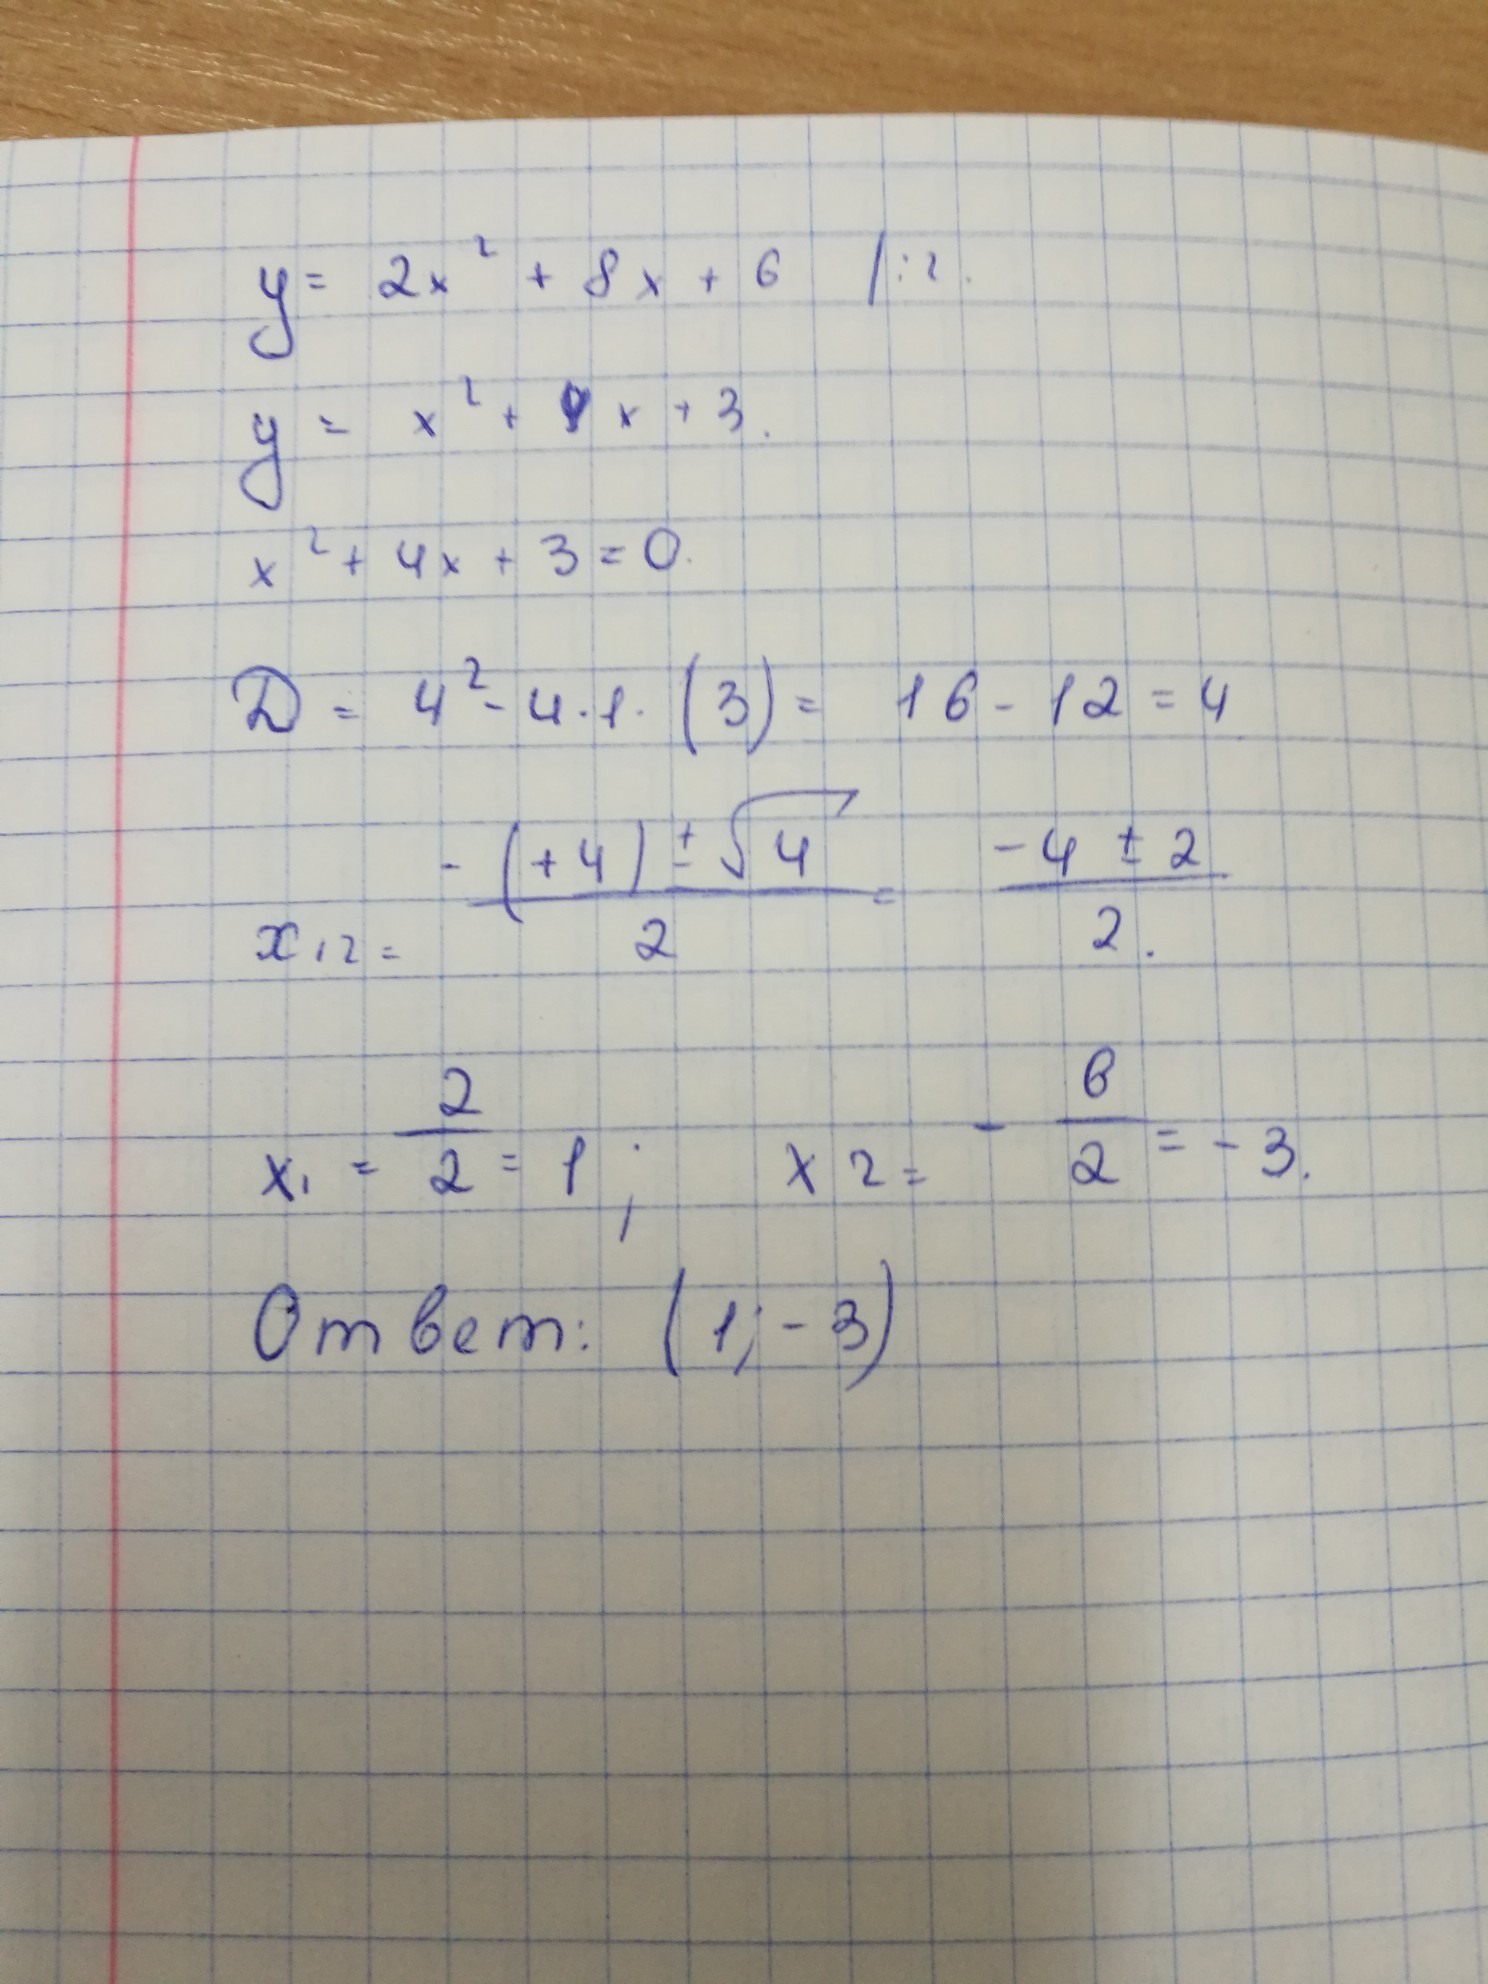 y = 2x² + 8x + 6 /:2.
y = x² + x + 3.
x² + 4x + 3 = 0.
D = 4² - 4·1·(3) = 16 - 12 = 4
x₁₂ = (-(+4) ± √4)/2 = (-4 ± 2)/2.
x₁ = 2/2 = 1; x2 = -6/2 = -3.
Ответ: (1; -3)